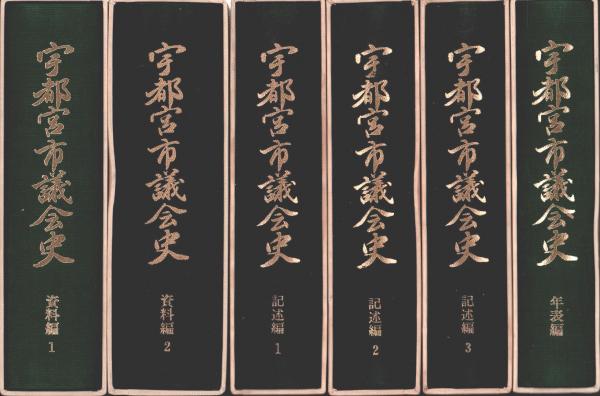 宇都宮市議会史
資料編
1
宇都宮市議会史
資料編
2
宇都宮市議会史
記述編
1
宇都宮市議会史
記述編
2
宇都宮市議会史
記述編
3
宇都宮市議会史
年表編